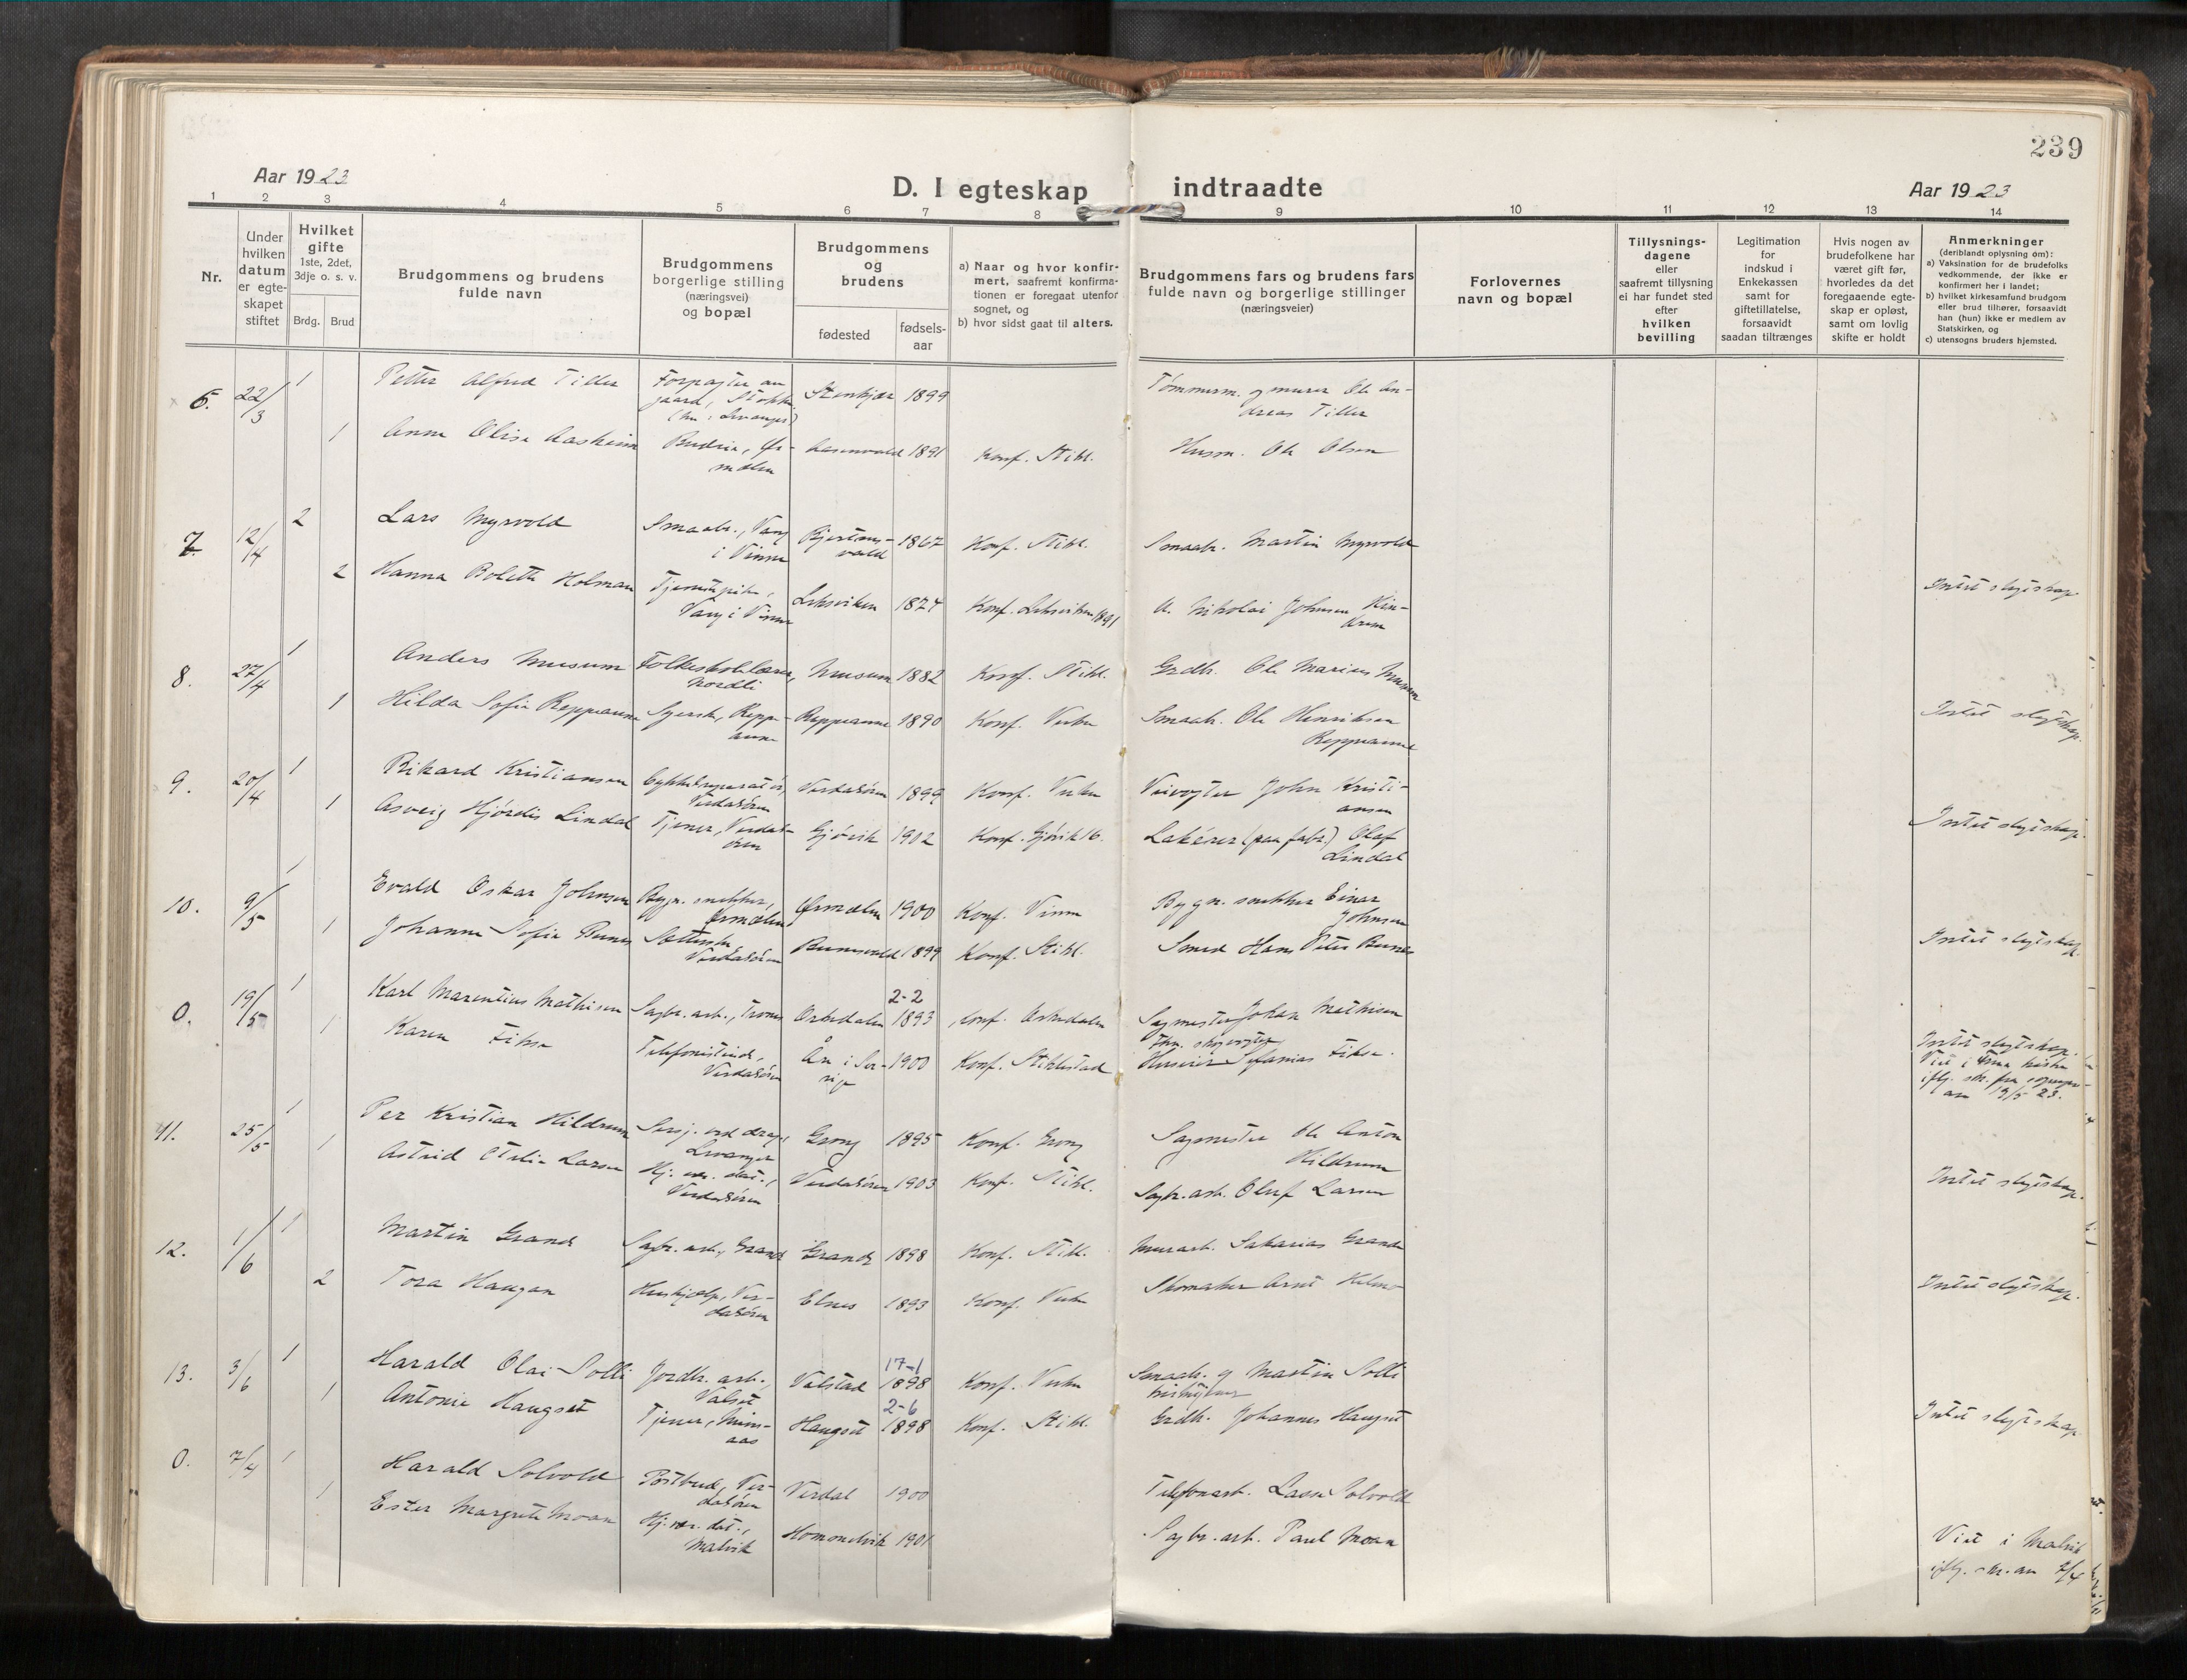 239
Aar 1923
D. I egteskap indtraadte
Aar 1923
1 2 3 4 5 6 7 8 9 10 11 12 13 14
Nr.
Under hvilken datum er egte-skapet stiftet
Hvilket gifte
1ste, 2det, 3dje o. s. v.
Brdg. Brud
Brudgommens og brudens
fulde navn
Brudgommens
borgerlige stilling
(næringsvei)
og bopæl
Brudgommens
og
brudens
fødested
fødsels-
aar
a) Naar og hvor konfir-
mert, saafremt konfirma-
tionen er foregaat utenfor
sognet, og
b) hvor sidst gaat til alters.
Brudgommens fars og brudens fars
fulde navn og borgerlige stillinger
(næringsveier)
Forlovernes
navn og bopæl
Tillysnings-
dagene
eller
saafremt tillysning
ei har fundet sted
efter
hvilken
bevilling
Legitimation
for
indskud i
Enkekassen
samt for
giftetillatelse,
forsaavidt
saadan tiltrænges
Hvis nogen av
brudefolkene har
været gift før,
hvorledes da det
foregaaende egte-
skap er opløst,
samt om lovlig
skifte er holdt
Anmerkninger
(deriblandt oplysning om):
a) Vaksination for de brudefolks
vedkommende, der ikke er
konfirmert her i landet;
b) hvilket kirkesamfund brudgom
eller brud tilhører, forsaavidt
han (hun) ikke er medlem av
Statskirken, og
c) utensogns bruders hjemsted.
6. 22/3 1 Petter Alfred Tiller
Forpagter av
gaard,
Stenkjær 1899
Tømmerm. og murer Ole An-
dreas Tiller
1 Anne Olise Aasheim
Budeie, Ør-
melen
1891 Konf. Stikl. Husm. Ole Olsen
7. 12/4 2 Lars Myrvold
Smaabr., Vang
i Vinne
1867 Konf. Stikl. Smaabr. Martin Myrvold
2 Hanna Bolette Holman
Tjenestepike,
Vang i Vinne
Leksviken 1874 Konf. Leksviken 1891
Nikolai Johnsen Hin-
drum
Intet slegtskap
8. 27/4 1 Anders Musum
Folkeskolelærer,
Nordli
Musum 1882 Konf. Stikl. Grdbr. Ole Marius Musum
1 Hilda Sofie Reppeaune
Syerske, Reppe-
aune
Reppeaune 1890 Konf. Vuku
Smaabr. Ole Henriksen
Reppeaune
Intet slegtskap.
9. 20/4 1 Rikard Kristiansen
Cykkelreparatør,
Verdalsøren
Verdalsøren 1899 Konf. Vuku
Veivogter John Kristi-
ansen
1 Asveig Hjørdis Lindal
Tjener, Verdals-
øren
Gjøvik 1902 Konf. Gjøvik 16.
Lakérer (paa fabr.) Olaf
Lindal
Intet slegtskap.
10. 9/5 1 Evald Oskar Johnsen
Bygn. snekker,
Ørmelen
Ørmelen 1900 Konf. Vinne
Bygn. snekker Einar
Johnsen
1 Johanne Sofie Bunes
Verdalsøren
Bunesvald 1899 Konf. Stikl. Smed Hans Peter Bunes
Intet slegtskap.
0. 19/5 1 Karl Marentius Mathisen
Sagbr. arb., Trones
Orkedalen 2-2 1893 Konf. Orkedalen
Sagmester Johan Mathisen
1 Karen Fikse
Telefonistinde,
Verdalsøren
Åre i Sve-
rige
1900 Konf. Stiklestad
Sefanias Fikse.
Intet slegtskap.
Viet i
19/5 23.
11. 25/5 1 Per Kristian Hildrum
Sersj. ved drag.,
Levanger
Grong 1895 Konf. Grong
Sagmester Ole Anton
Hildrum
1 Astrid Otelie Larsen
Hj. vær. dat.,
Verdalsøren
Verdalsøren 1903 Konf. Stikl. Sagbr. arb. Oluf Larsen
Intet slegtskap.
12. 1/6 1 Martin Grande
Sagbr. arb., Grande Grande 1898 Konf. Stikl. Murarb. Sakarias Grande
2 Tora Haugan
Hushjælp, Ver-
dalsøren
Elnes 1893 Konf. Vuku Skomaker Arnt Holmo
Intet slegtskap.
13. 3/6 1 Harald Olai Solli
Jordbr. arb.,
Valset
Valstad 17-1 1898 Konf. Vuku
Smaabr. og Martin Solli
1 Antonie Haugset
Tjener, Mins-
aas
Haugset 2-6 1898 Konf. Stikl. Grdb. Johannes Haugset
Intet slegtskap
0. 7/4 1 Harald Solvold
Postbud, Ver-
dalsøren
Verdal 1900 Telefonarb. Lasse Solvold
1 Ester Margrete Moan
Hj. vær. dat.,
Malvik
Hommelvik 1901 Sagbr. arb. Paul Moan
Viet i Malvik
iflg. 7/4